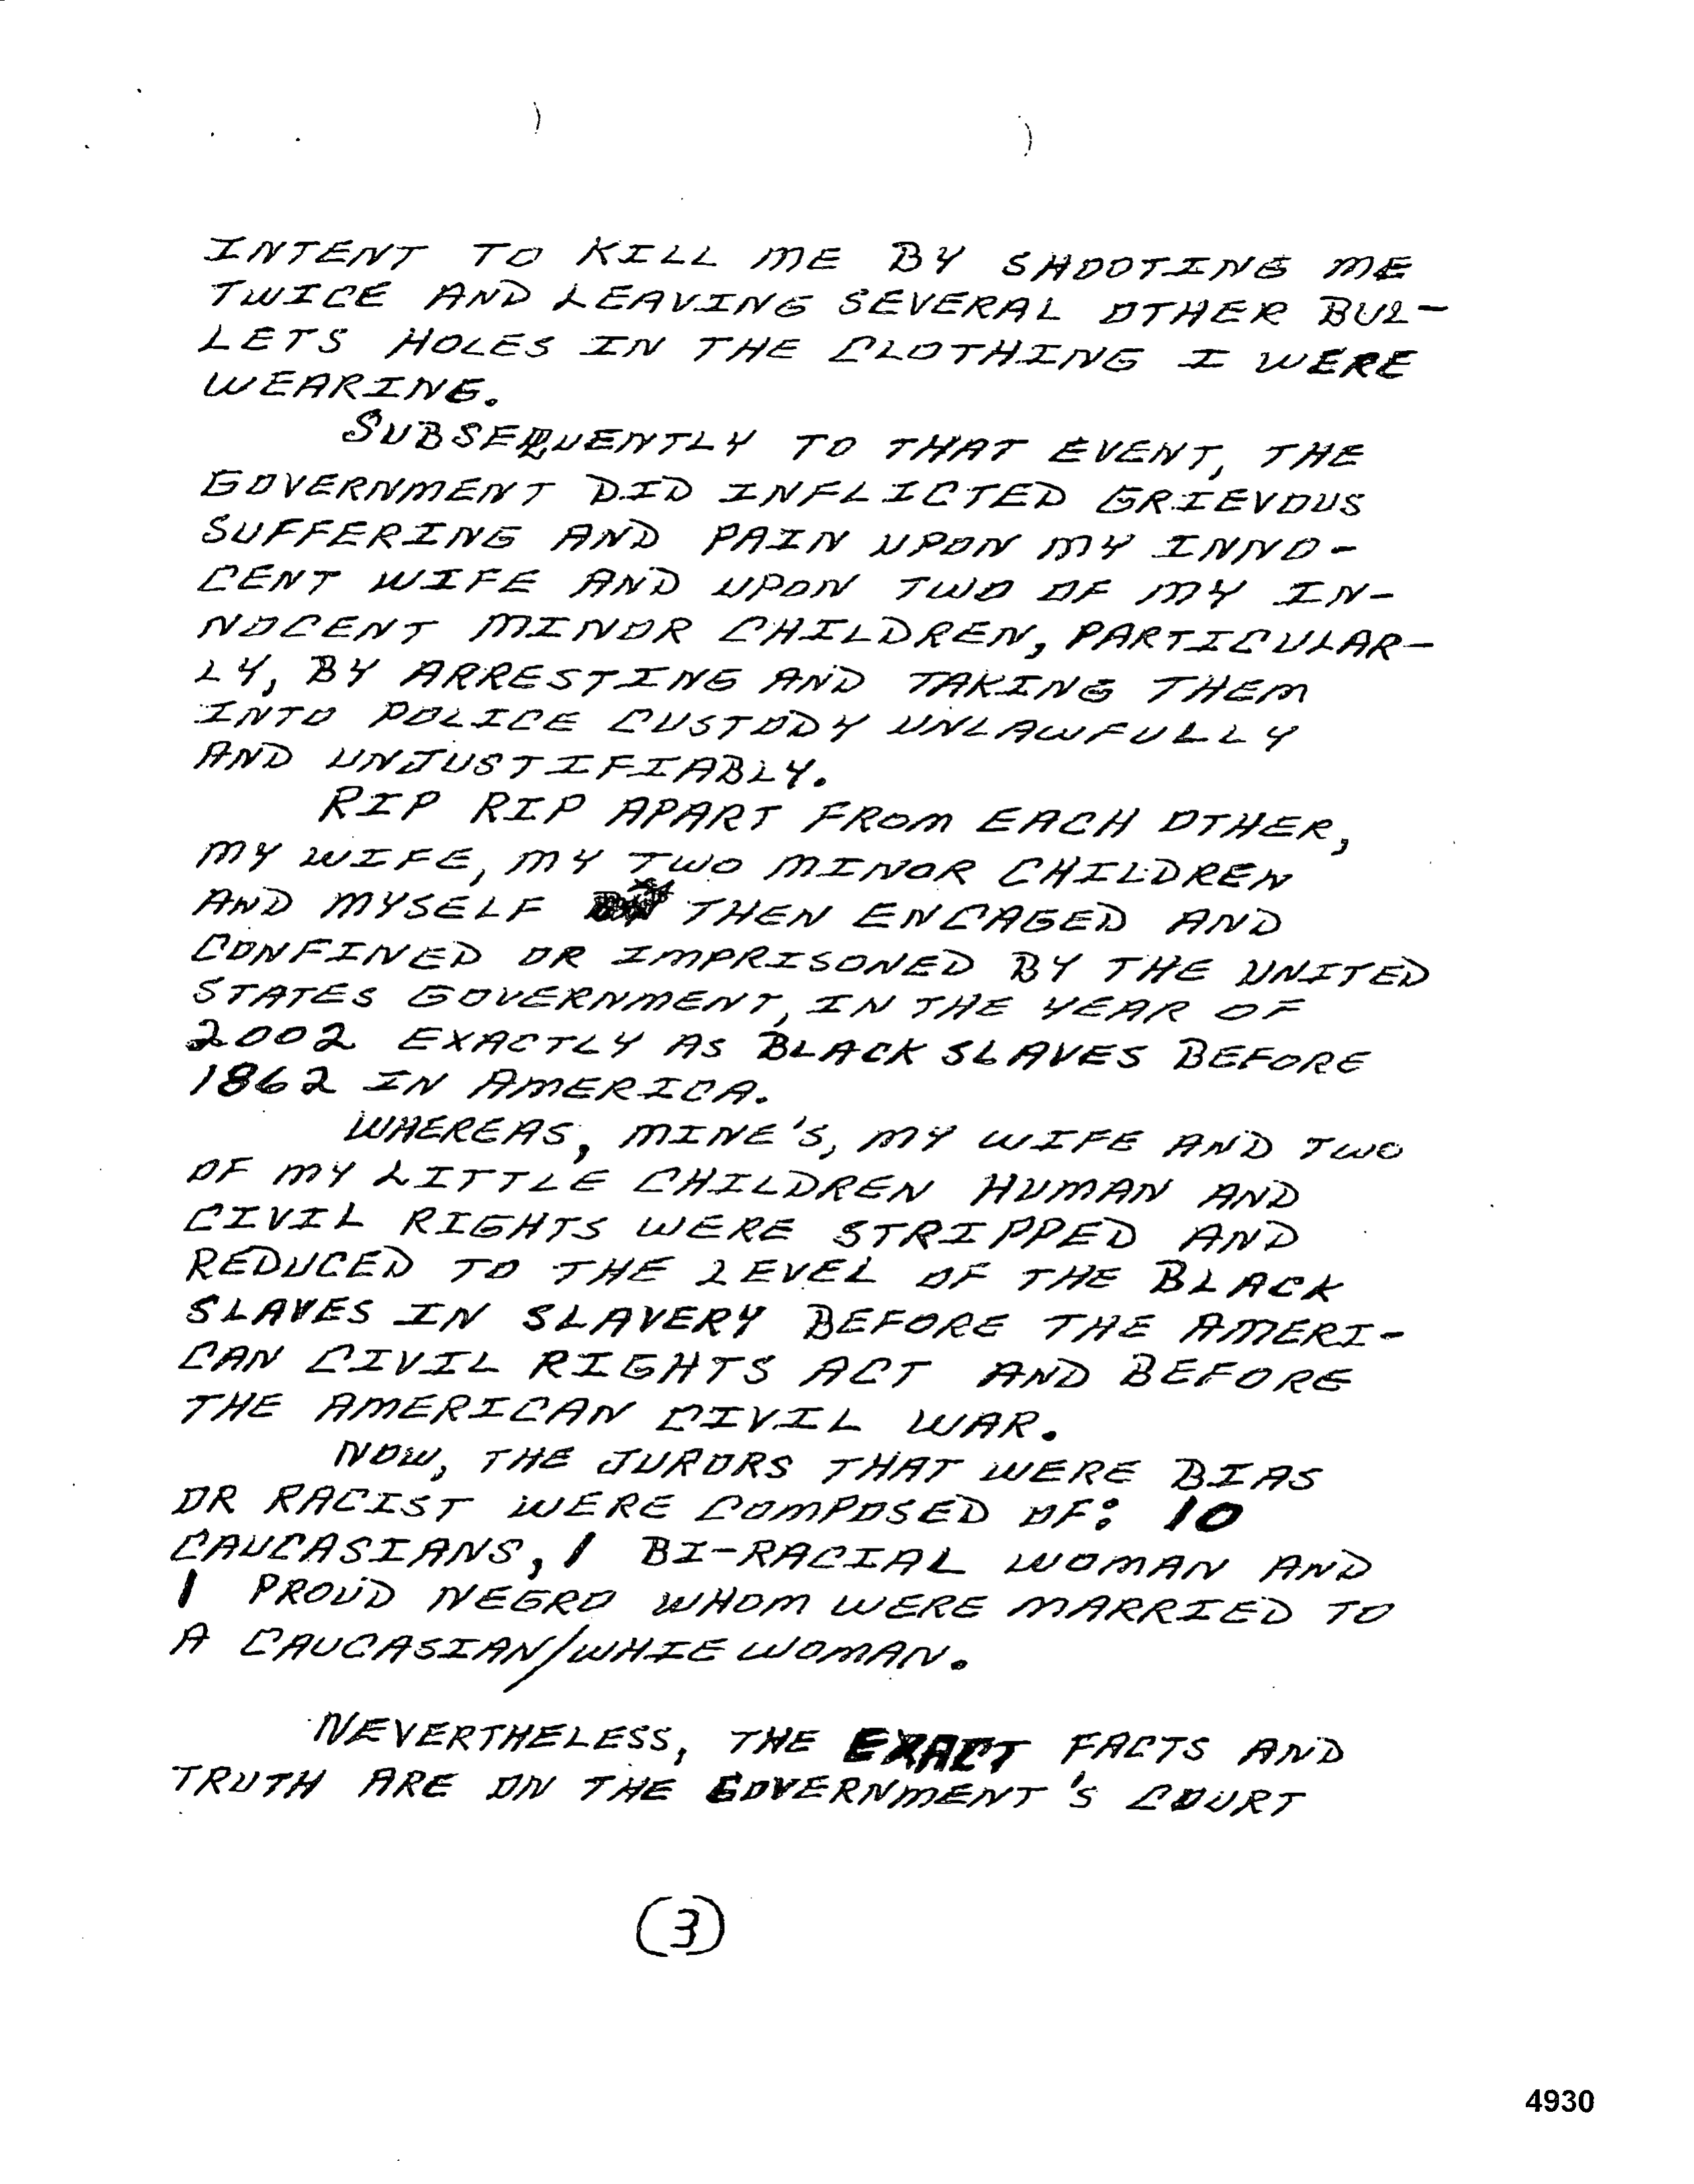 INTENT TO KILL ME BY SHOOTING ME
TWICE AND LEAVING SEVERAL OTHER BUL-
LETS HOLES IN THE CLOTHING I WERE
WEARING.
SUBSEQUENTLY TO THAT EVENT, THE
GOVERNMENT DID INFLICTED GRIEVOUS
SUFFERING AND PAIN UPON MY INNO-
CENT WIFE AND UPON TWO OF MY IN-
NOCENT MINOR CHILDREN, PARTICULAR-
LY, BY ARRESTING AND TAKING THEM
INTO POLICE CUSTODY UNLAWFULLY
AND UNJUSTIFIABLY.
RIP RIP APART FROM EACH OTHER,
MY WIFE, MY TWO MINOR CHILDREN
AND MYSELF THEN ENCAGED AND
CONFINED OR IMPRISONED BY THE UNITED
STATES GOVERNMENT, IN THE YEAR OF
2002 EXACTLY AS BLACK SLAVES BEFORE
1862 IN AMERICA.
WHEREAS, MINE'S, MY WIFE AND TWO
OF MY LITTLE CHILDREN HUMAN AND
CIVIL RIGHTS WERE STRIPPED AND
REDUCED TO THE LEVEL OF THE BLACK
SLAVES IN SLAVERY BEFORE THE AMERI-
CAN CIVIL RIGHTS ACT AND BEFORE
THE AMERICAN CIVIL WAR.
NOW, THE JURORS THAT WERE BIAS
OR RACIST WERE COMPOSED OF: 10
CAUCASIANS, 1 BI-RACIAL WOMAN AND
1 PROUD NEGRO WHOM WERE MARRIED TO
A CAUCASIAN/WHIE WOMAN.
NEVERTHELESS, THE EXACT FACTS AND
TRUTH ARE ON THE GOVERNMENT'S COURT
(3)
4930